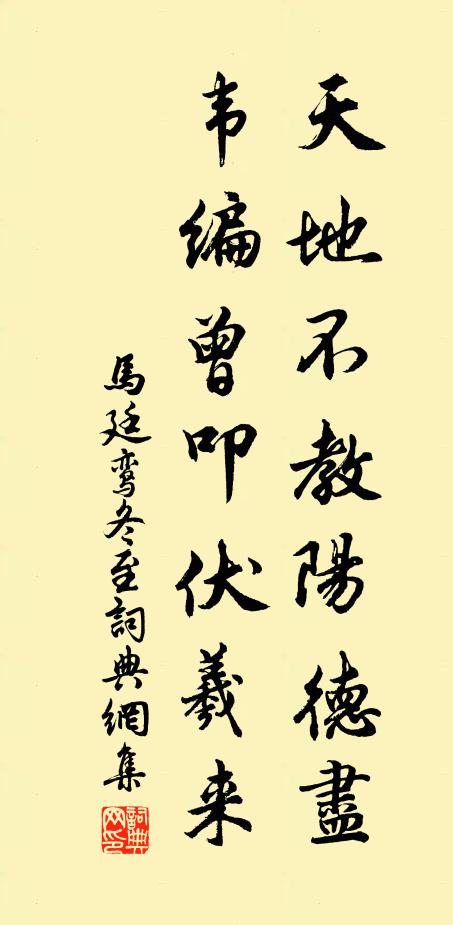 天地不教陽德盡
韦編曾叩伏羲来
馬廷鸾冬至詞典網集
詞典網印